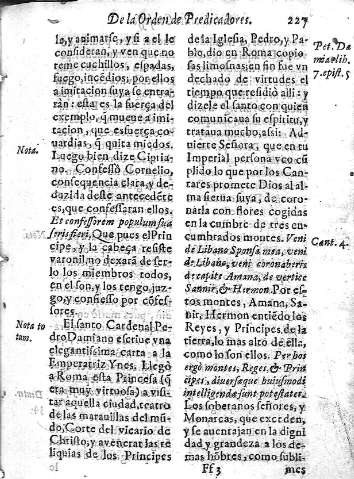 De la Orden de Predicadores. 227
lo, y animarse, y si a el le
consideran, y ven que no
teme cuchillos, espadas,
fuego, incēdios, por ellos
a imitacion suya se entra-
rán: esta es la fuerça del
exemplo, q̄ mueve a imi-
tacion, que esfuerça co-
uardias, q̄ quita miedos.
Luego bien dize Cipria-
no. Confessò Cornelio,
consequencia clara, y de-
duzida deste antecedēte
es, que confessaran ellos.
Et confessorem populum sua
Que pues el Prin-
cipe, y la cabeça resiste
varonil, no dexará de ser-
lo los miembros todos,
en el son, y los tengo, juz-
go, y confiesso por cōfes-
sores.
El santo Cardenal Pe-
dro Damiano escriue vna
elegantissima carta a la
Emperatriz Ynes. Llegò
a Roma esta Princesa (q̄
era muy virtuosa) a visi-
tar aquella ciudad, teatro
de las marauillas del mū-
do, Corte del vicario de
Christo, y a venerar las re-
liquias de los Principes
Nota.
Nota to
tam.
de la Iglesia, Pedro, y Pa-
blo, dio en Roma copio-
sas limosnas, en fin fue vn
dechado de virtudes el
tiempo que residiò alli: y
dizele el santo con quien
comunicaua su espiritu, y
trataua mucho, assi: Ad-
uierte Señora, que en tu
Imperial persona veo cū-
plido lo que por los Can-
tares promete Dios al al-
ma sierua suya, de coro-
narla con flores cogidas
en la cumbre de tres en-
cumbrados montes. Veni
de Libano Sponsa mea, veni
de Libano, veni coronaberis
de capite Amana, de vertice
Sannir, & Hermon. Por es-
tos montes, Amana, Sa-
nir, Hermon entiēdo los
Reyes, y Principes de la
tierra, lo mas alto de ella,
como lo son ellos. Per hos
ergo montes, Reges, & Prin
cipes, diuersaque huiusmodi
intelligendæ sunt potestates.
Los soberanos señores, y
Monarcas, que exceden,
y se auentajan en la digni
dad y grandeza a los de-
mas hōbres, como subli-
Pet. Da
mia. lib.
7. epist. 5
Cant. 4.
Ff 3 mes